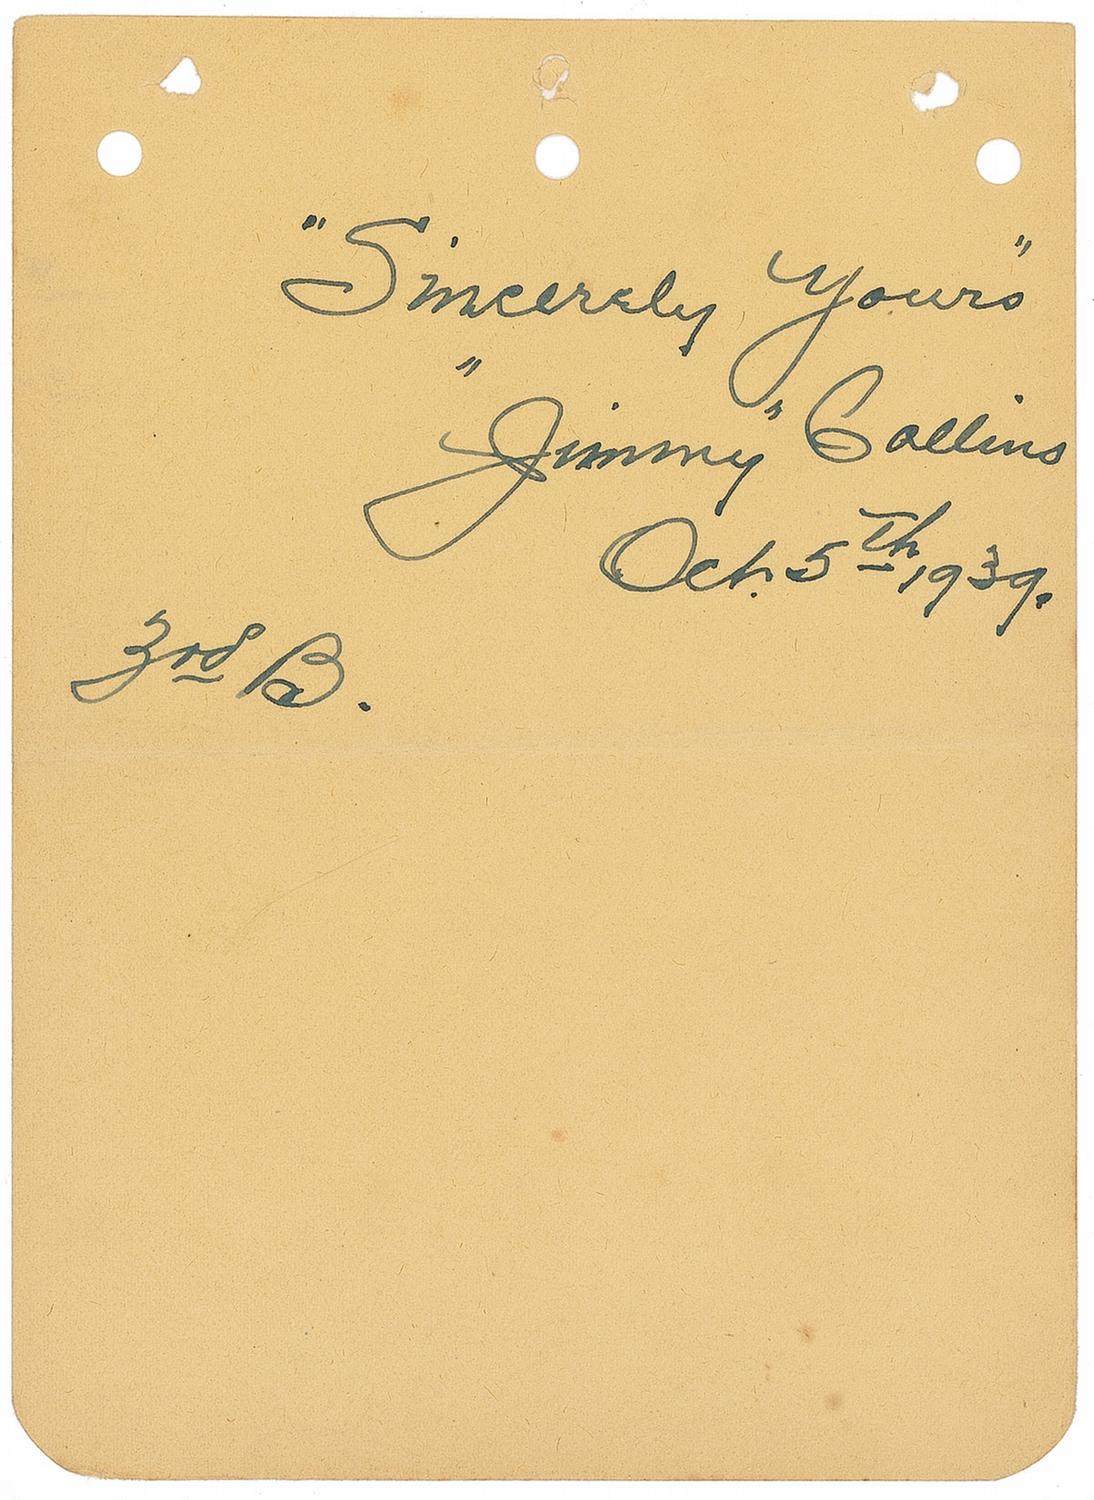 "Sincerely Yours"
"Jimmy" Collins
Oct. 5th, 1939.
3rd B.